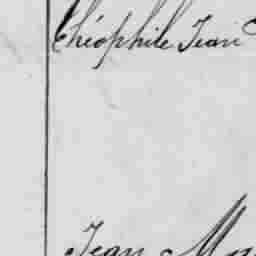 Théophile Jean
Jean